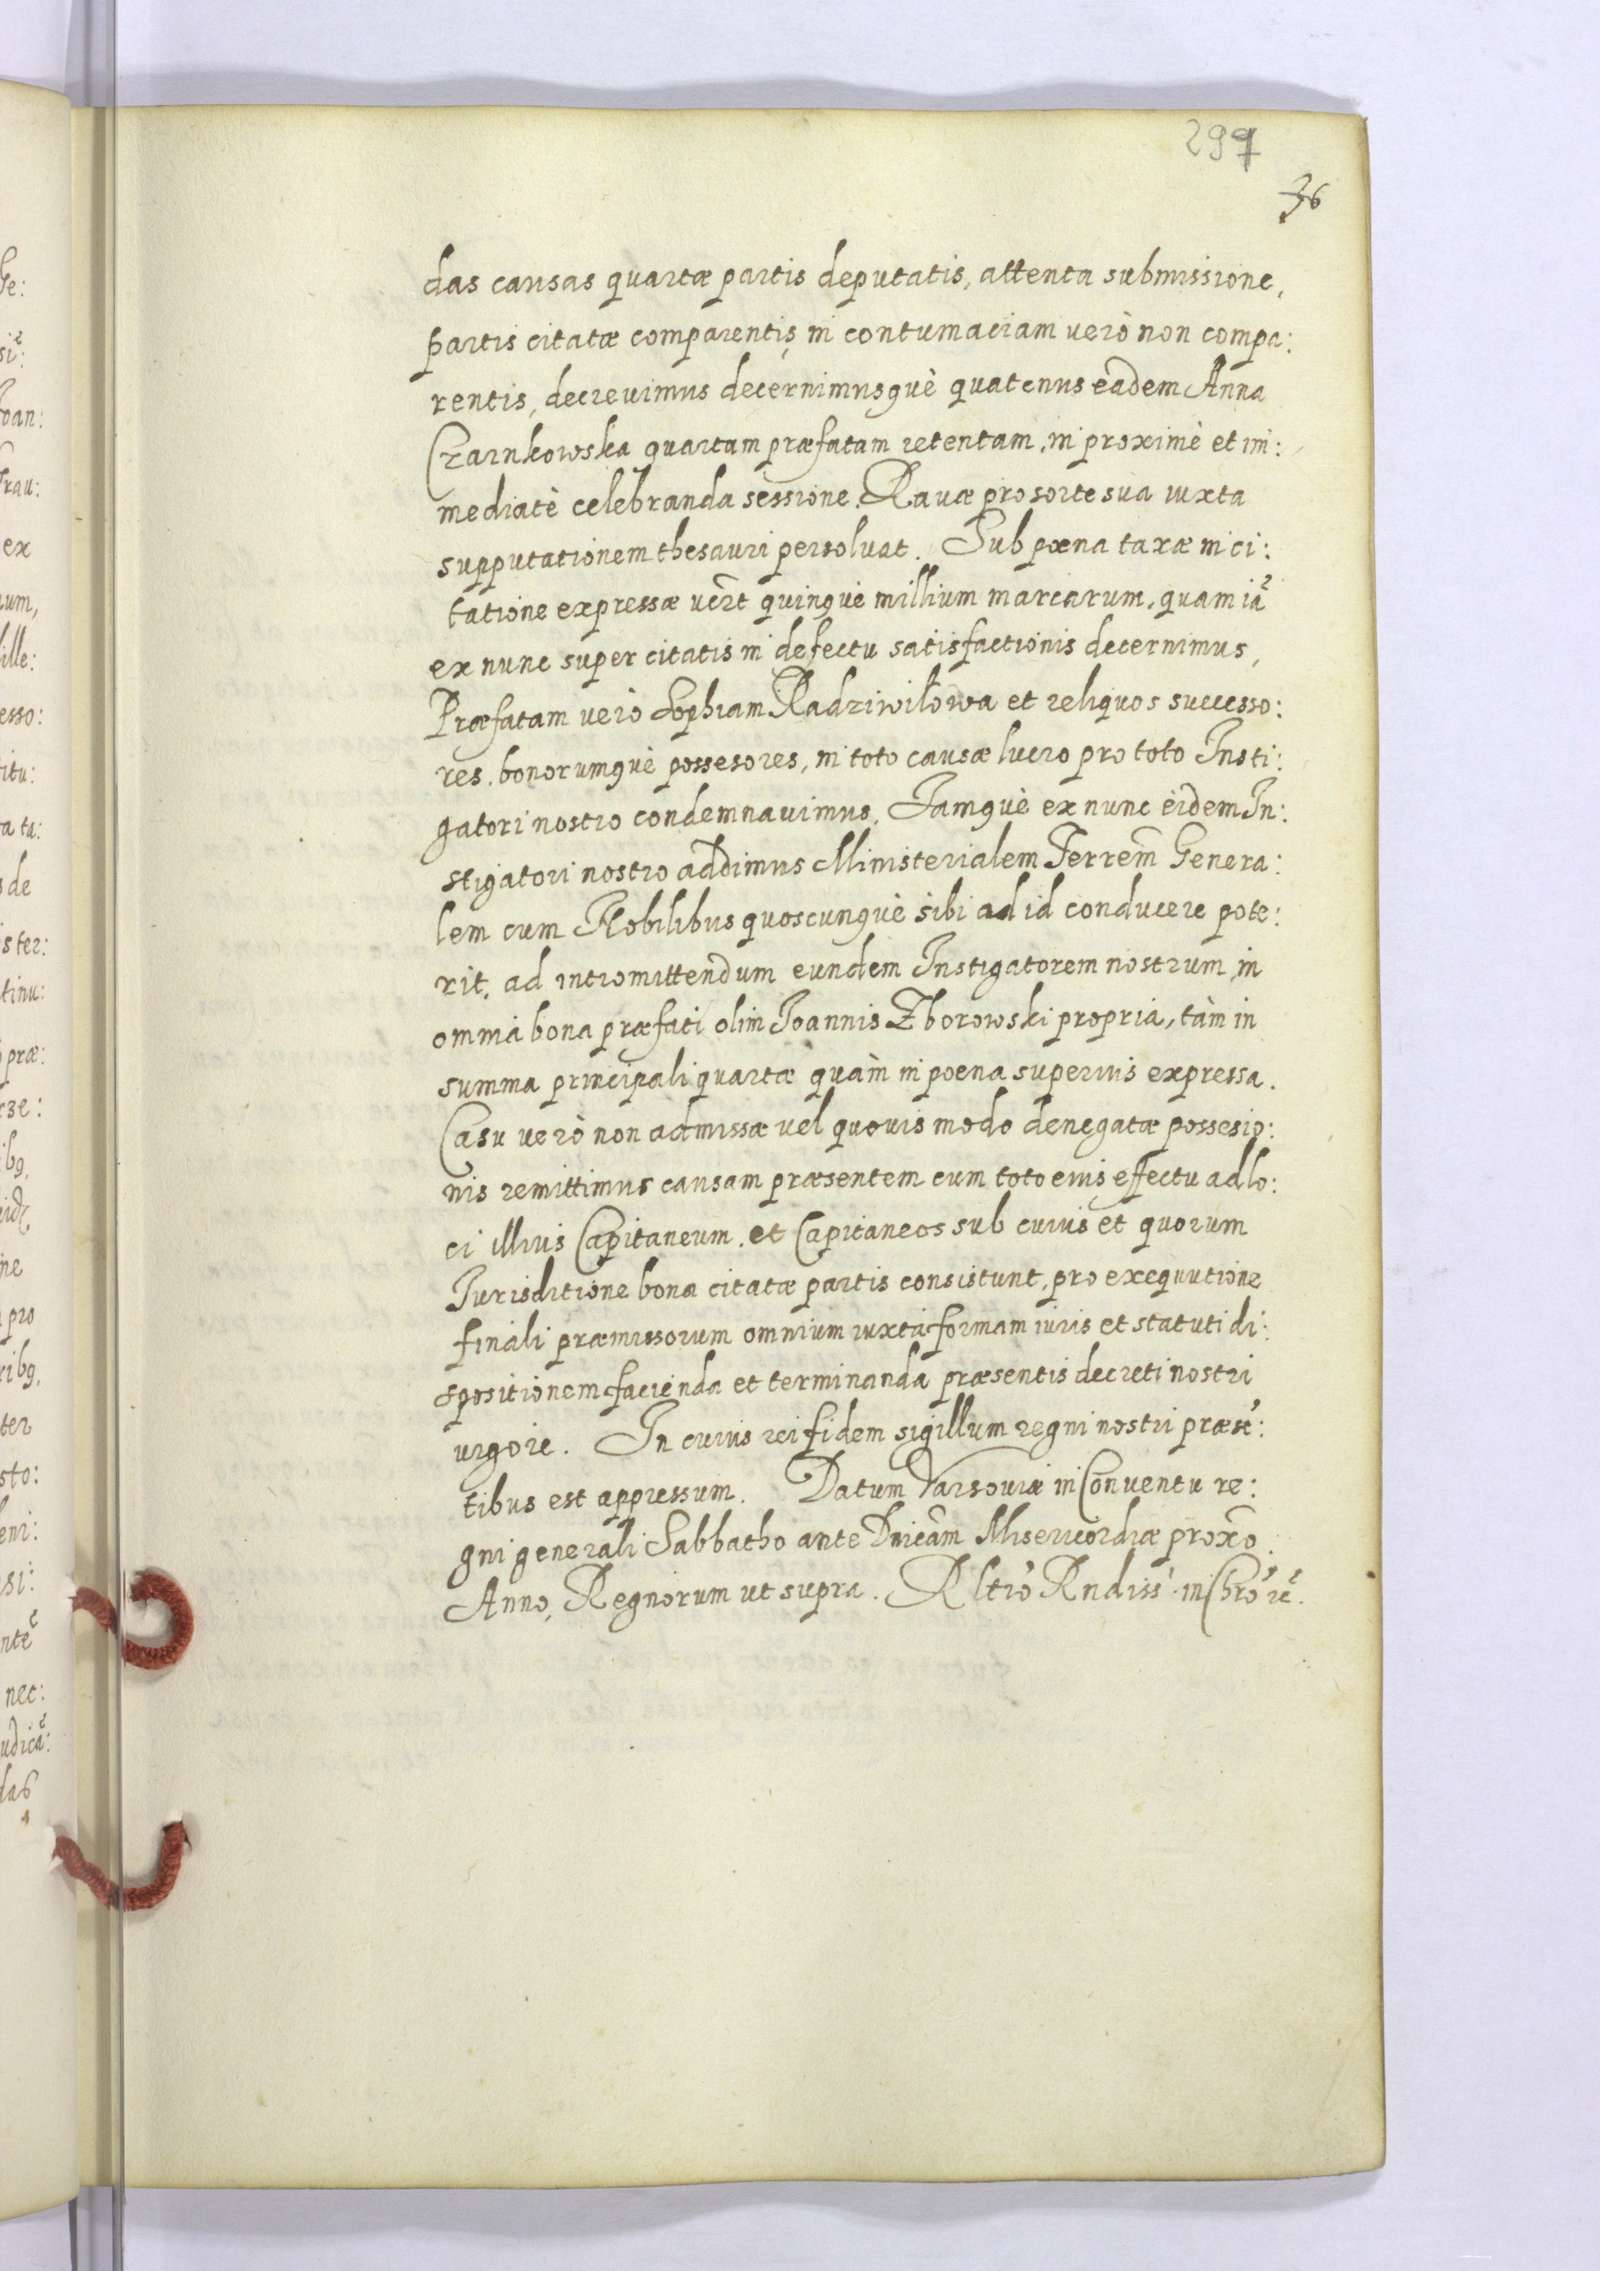 297
36
das causas quartæ partis deputatis, attenta submissione,
partis citatæ comparentis, in contumaciam verò non compa:
rentis, decrevimus decernimusquè quatenus eadem Anna
Czarnkowska quartam præfatam retentam, in proximè et im:
mediatè celebranda sessione Ravæ pro sorte sua iuxta
supputationem thesauri persolvat. Sub pœna taxæ in ci:
tatione expressæ vĩzt quinquè millium marcarum, quam iã
ex nunc super citatis in defectu satisfactionis decernimus,
Præfatam verò Sophiam Radziwiłowa et reliquos successo:
res, bonorumquè possesores, in toto causæ lucro pro toto Insti:
gatori nostro condemnavimus. Jamquè ex nunc eidem In:
stigatori nostro addimus Ministerialem Terrẽm Genera:
lem cum Nobilibus quoscunquè sibi ad id conducere pote:
rit, ad intromittendum eundem Instigatorem nostrum, in
omnia bona præfati olim Joannis Zborowski propria, tàm in
summa principali quartæ quàm in poena superius expressa.
Casu verò non admissæ vel quovis modo denegatæ possesio:
nis remittimus causam præsentem cum toto eius effectu ad lo:
ci illius Capitaneum, et Capitaneos sub cuius et quorum
Jurisditione bona citatæ partis consistunt, pro exequutione
finali præmissorum omnium iuxta formam iuris et statuti di:
spositionem facienda et terminanda præsentis decreti nostri
vigore. In cuius rei fidem sigillum regni nostri præsẽ:
tibus est appressum. Datum Varsoviæ in Conventu re:
gni generali Sabbatho ante Dnicãm Misericordiæ proxõ.
Anno, Regnorum ut supra. Rltiõ Rndiss: in Chrõ